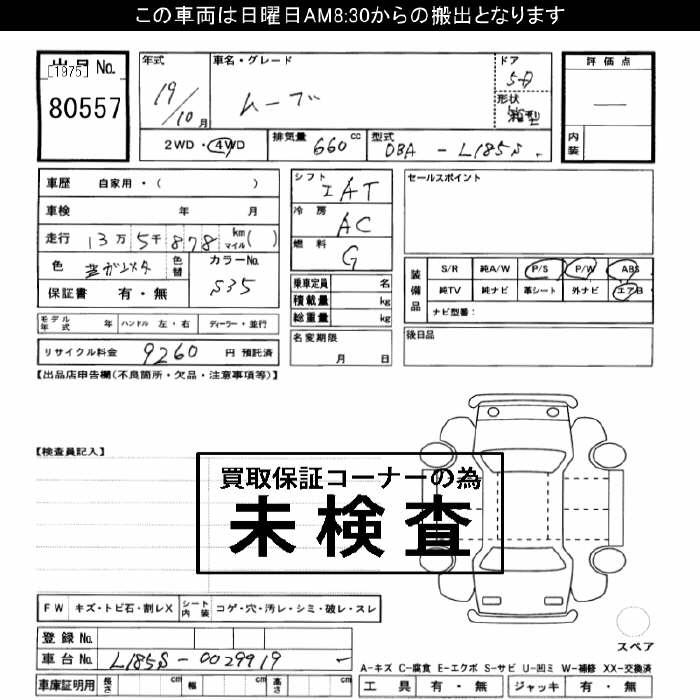 この車両は日曜日AM8:30からの搬出となります
出品No.
[1975]
80557
年式
19/10月
車名・グレード
ムーブ
ドア
5D
形状
箱型
評価点
―
内装
2WD・4WD
排気量 660 cc
型式 DBA - L185S
車歴 自家用・( )
車検 年 月
走行 13万5千878 km マイル( )
色
色替
カラーNo.
S35
保証書 有・無
シフト IAT
冷房 AC
燃料 G
乗車定員 名
積載量 kg
総重量 kg
セールスポイント
装備品
S/R 純A/W P/S P/W ABS
純TV 純ナビ 革シート 外ナビ エアB
ナビ型番:
モデル年式 年 ハンドル 左・右 ディーラー・並行
名変期限
月 日
後日品
リサイクル料金 9260 円 預託済
【出品店申告欄(不良箇所・欠品・注意事項等)】
【検査員記入】
買取保証コーナーの為
未検査
FW キズ・トビ石・割レX シート内装 コゲ・穴・汚レ・シミ・破レ・スレ
登録No.
車台No. L185S-0029919
スペア
A-キズ C-腐食 E-エクボ S-サビ U-凹ミ W-補修 XX-交換済
車庫証明用 長さ cm 幅 cm 高さ cm
工具 有・無 ジャッキ 有・無